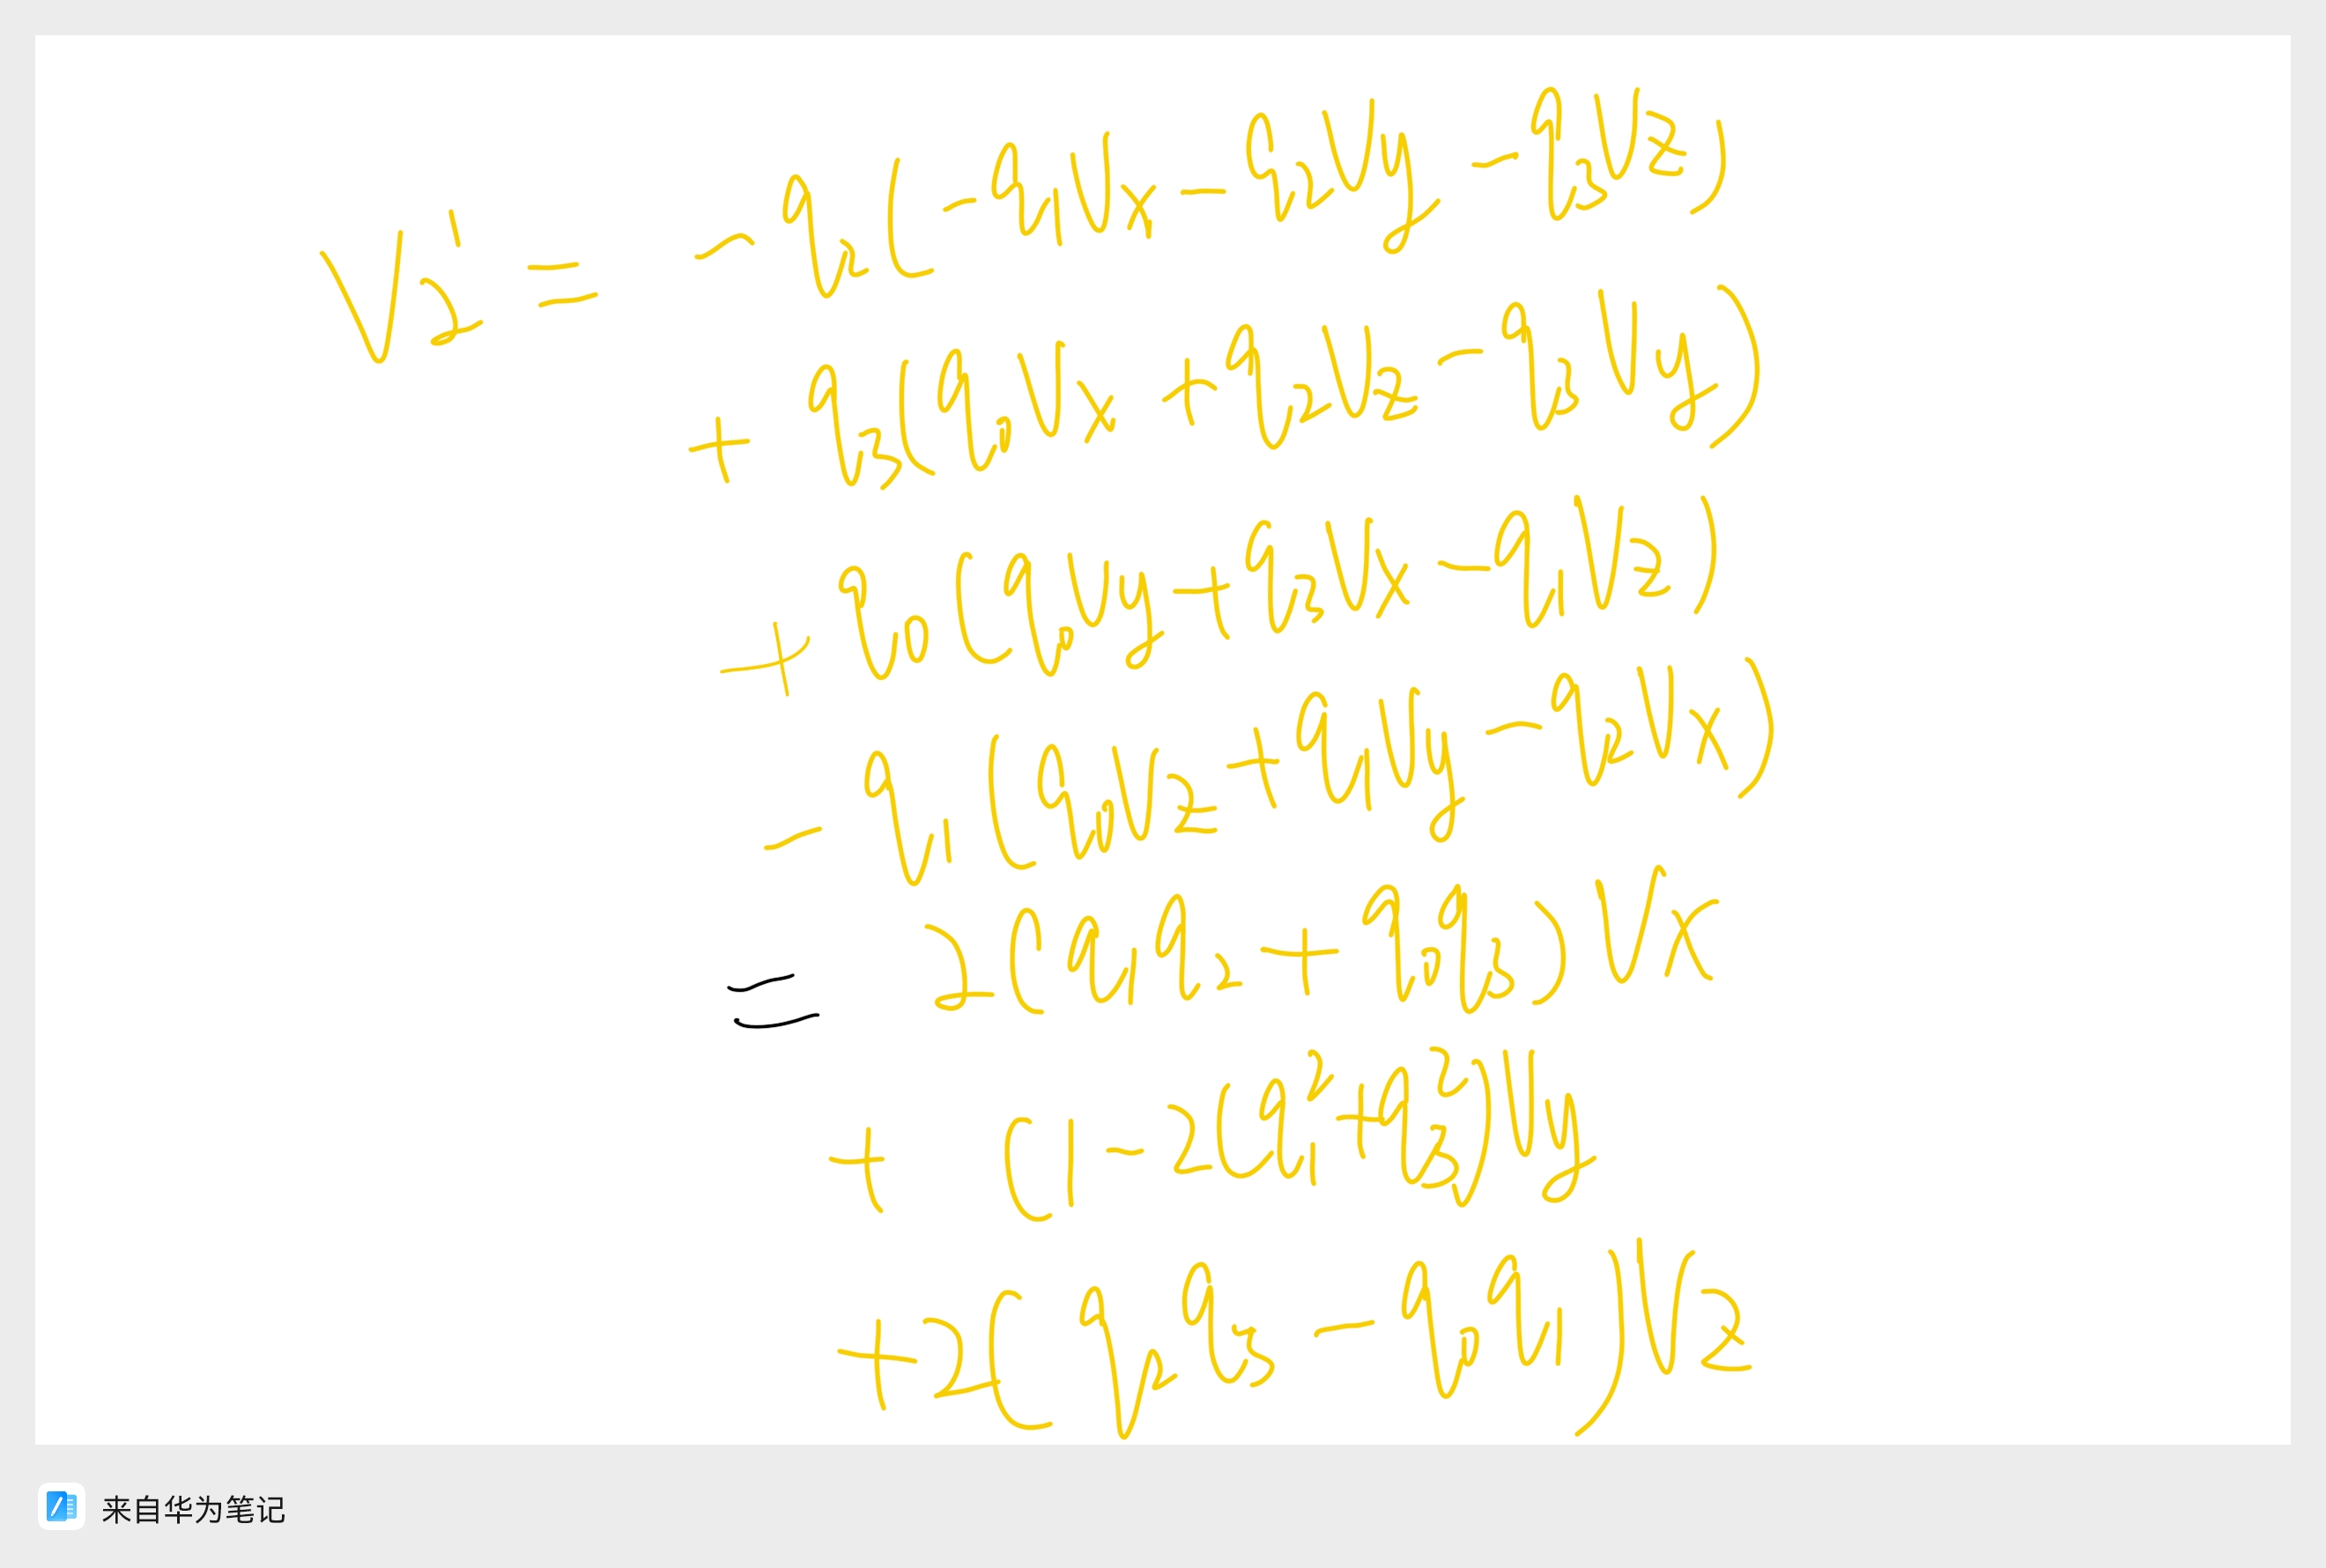 V₂' = - q₂(-q₁Vx - q₂Vy - q₃Vz)
+ q₃(q₀Vx + q₂Vz - q₃Vy)
+ q₀(q₀Vy + q₃Vx - q₁Vz)
- q₁(q₀Vz + q₁Vy - q₂Vx)
= 2(q₁q₂ + q₀q₃)Vx
+ (1 - 2(q₁² + q₃²)Vy
+ 2(q₂q₃ - q₀q₁)Vz
来自华为笔记